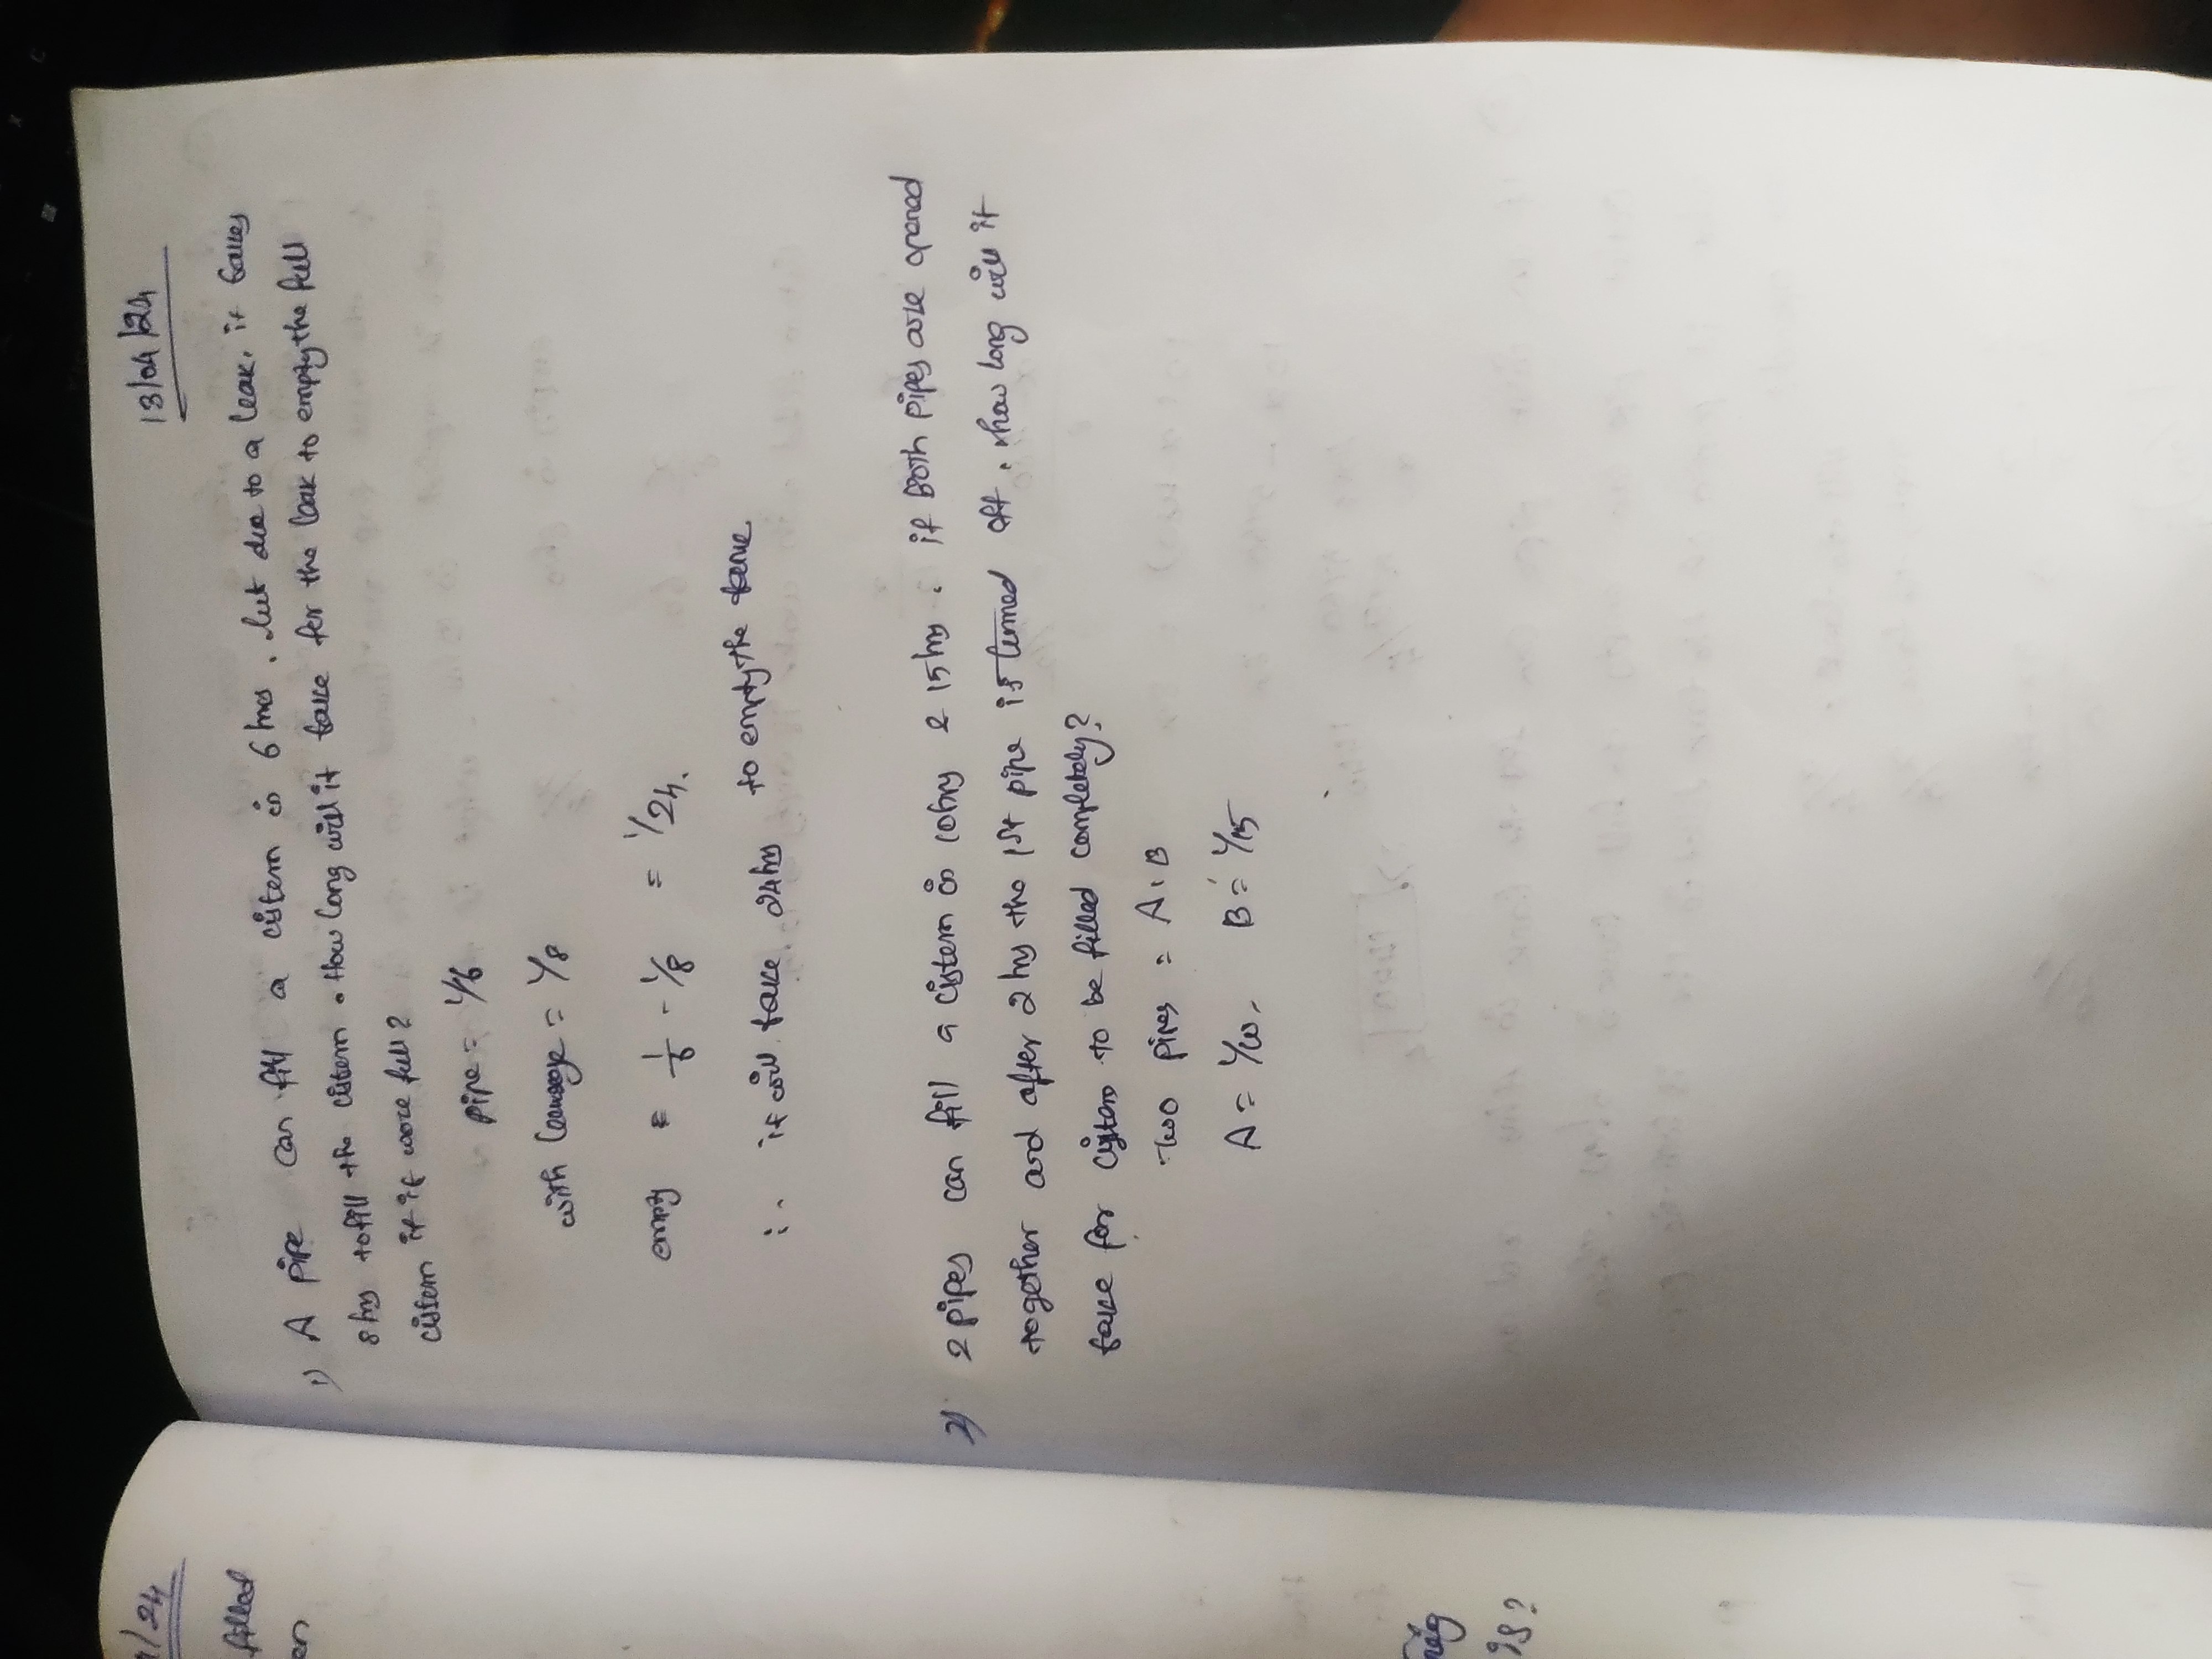 /24
filled
en
ing
is?
13/04/24
1) A pipe can fill a cistern in 6 hrs. but due to a leak, it takes
8 hrs to fill the cistern. How long will it take for the leak to empty the full
cistern if it were full?
pipe = 1/6
with leakage = 1/8
empty = 1/6 - 1/8 = 1/24.
∴ it will take 24 hrs to empty the tank
2) 2 pipes can fill a cistern in 10 hrs & 15 hrs. if Both pipes are opened
together and after 2 hrs the 1st pipe is turned off. how long will it
take for cistern to be filled completely?
Two pipes = A, B
A = 1/10, B = 1/15